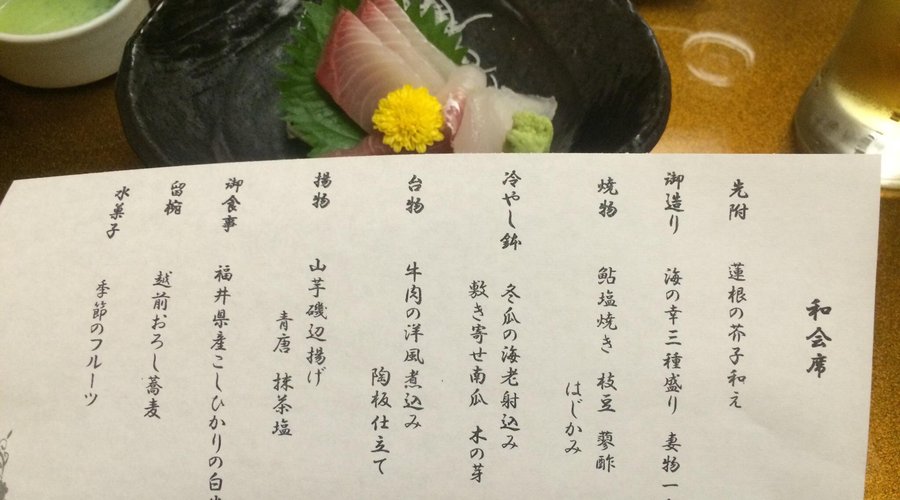 和会席
先附 蓮根の芥子和え
御造り 海の幸三種盛り 妻物一
焼物 鮎塩焼き 枝豆 蓼酢
はじかみ
冷やし鉢 冬瓜の海老射込み
敷き寄せ南瓜 木の芽
台物 牛肉の洋風煮込み
陶板仕立て
揚物 山芋磯辺揚げ
青唐 抹茶塩
御食事 福井県産こしひかりの白
留椀 越前おろし蕎麦
水菓子 季節のフルーツ